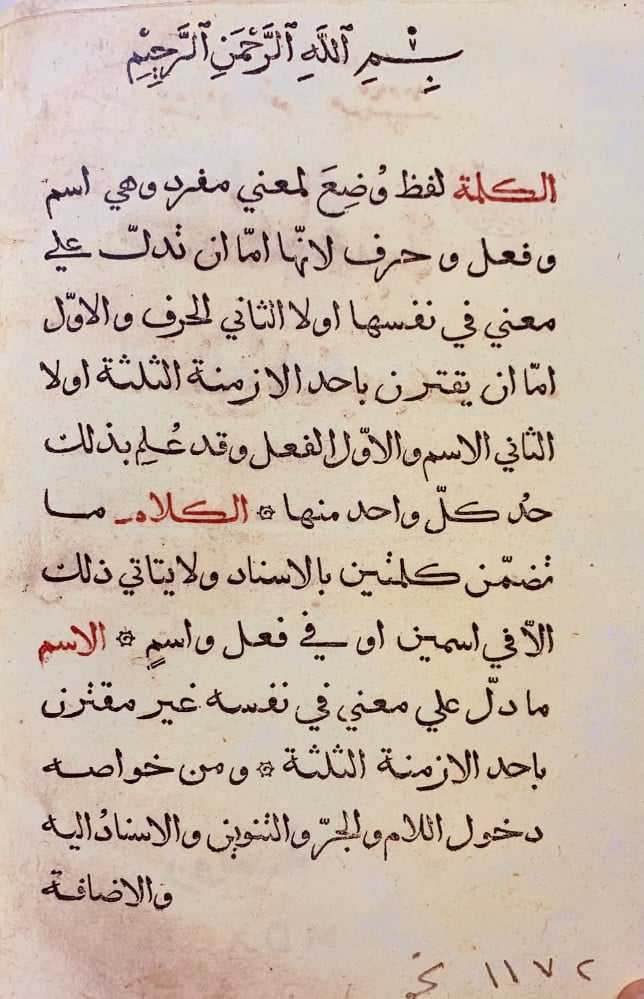 بِسْمِ ٱللَّهِ ٱلرَّحْمَنِ ٱلرَّحِيمِ
الكلمة لفظ وُضِعَ لمعني مفرد وهي اسم
وفعل و حرف لانّها امّا ان تدلّ علي
معني في نفسها اولا الثاني الحرف والاوّل
امّا ان يقترن باحد الازمنة الثلثة اولا
الثاني الاسم والاوّل الفعل وقد عُلِم بذلك
حُد كلّ واحد منها ۞ الكلام ما
تضمّن كلمتين بالاسناد ولا يتاتي ذلك
الاّ في اسمين او في فعل واسمٍ ۞ الاسم
ما دلّ علي معني في نفسه غير مقترن
باحد الازمنة الثلثة ۞ ومن خواصه
دخول اللام والجرّ والتنوين والاسنادُ اليه
والاضافة
١١٧٢ نحو